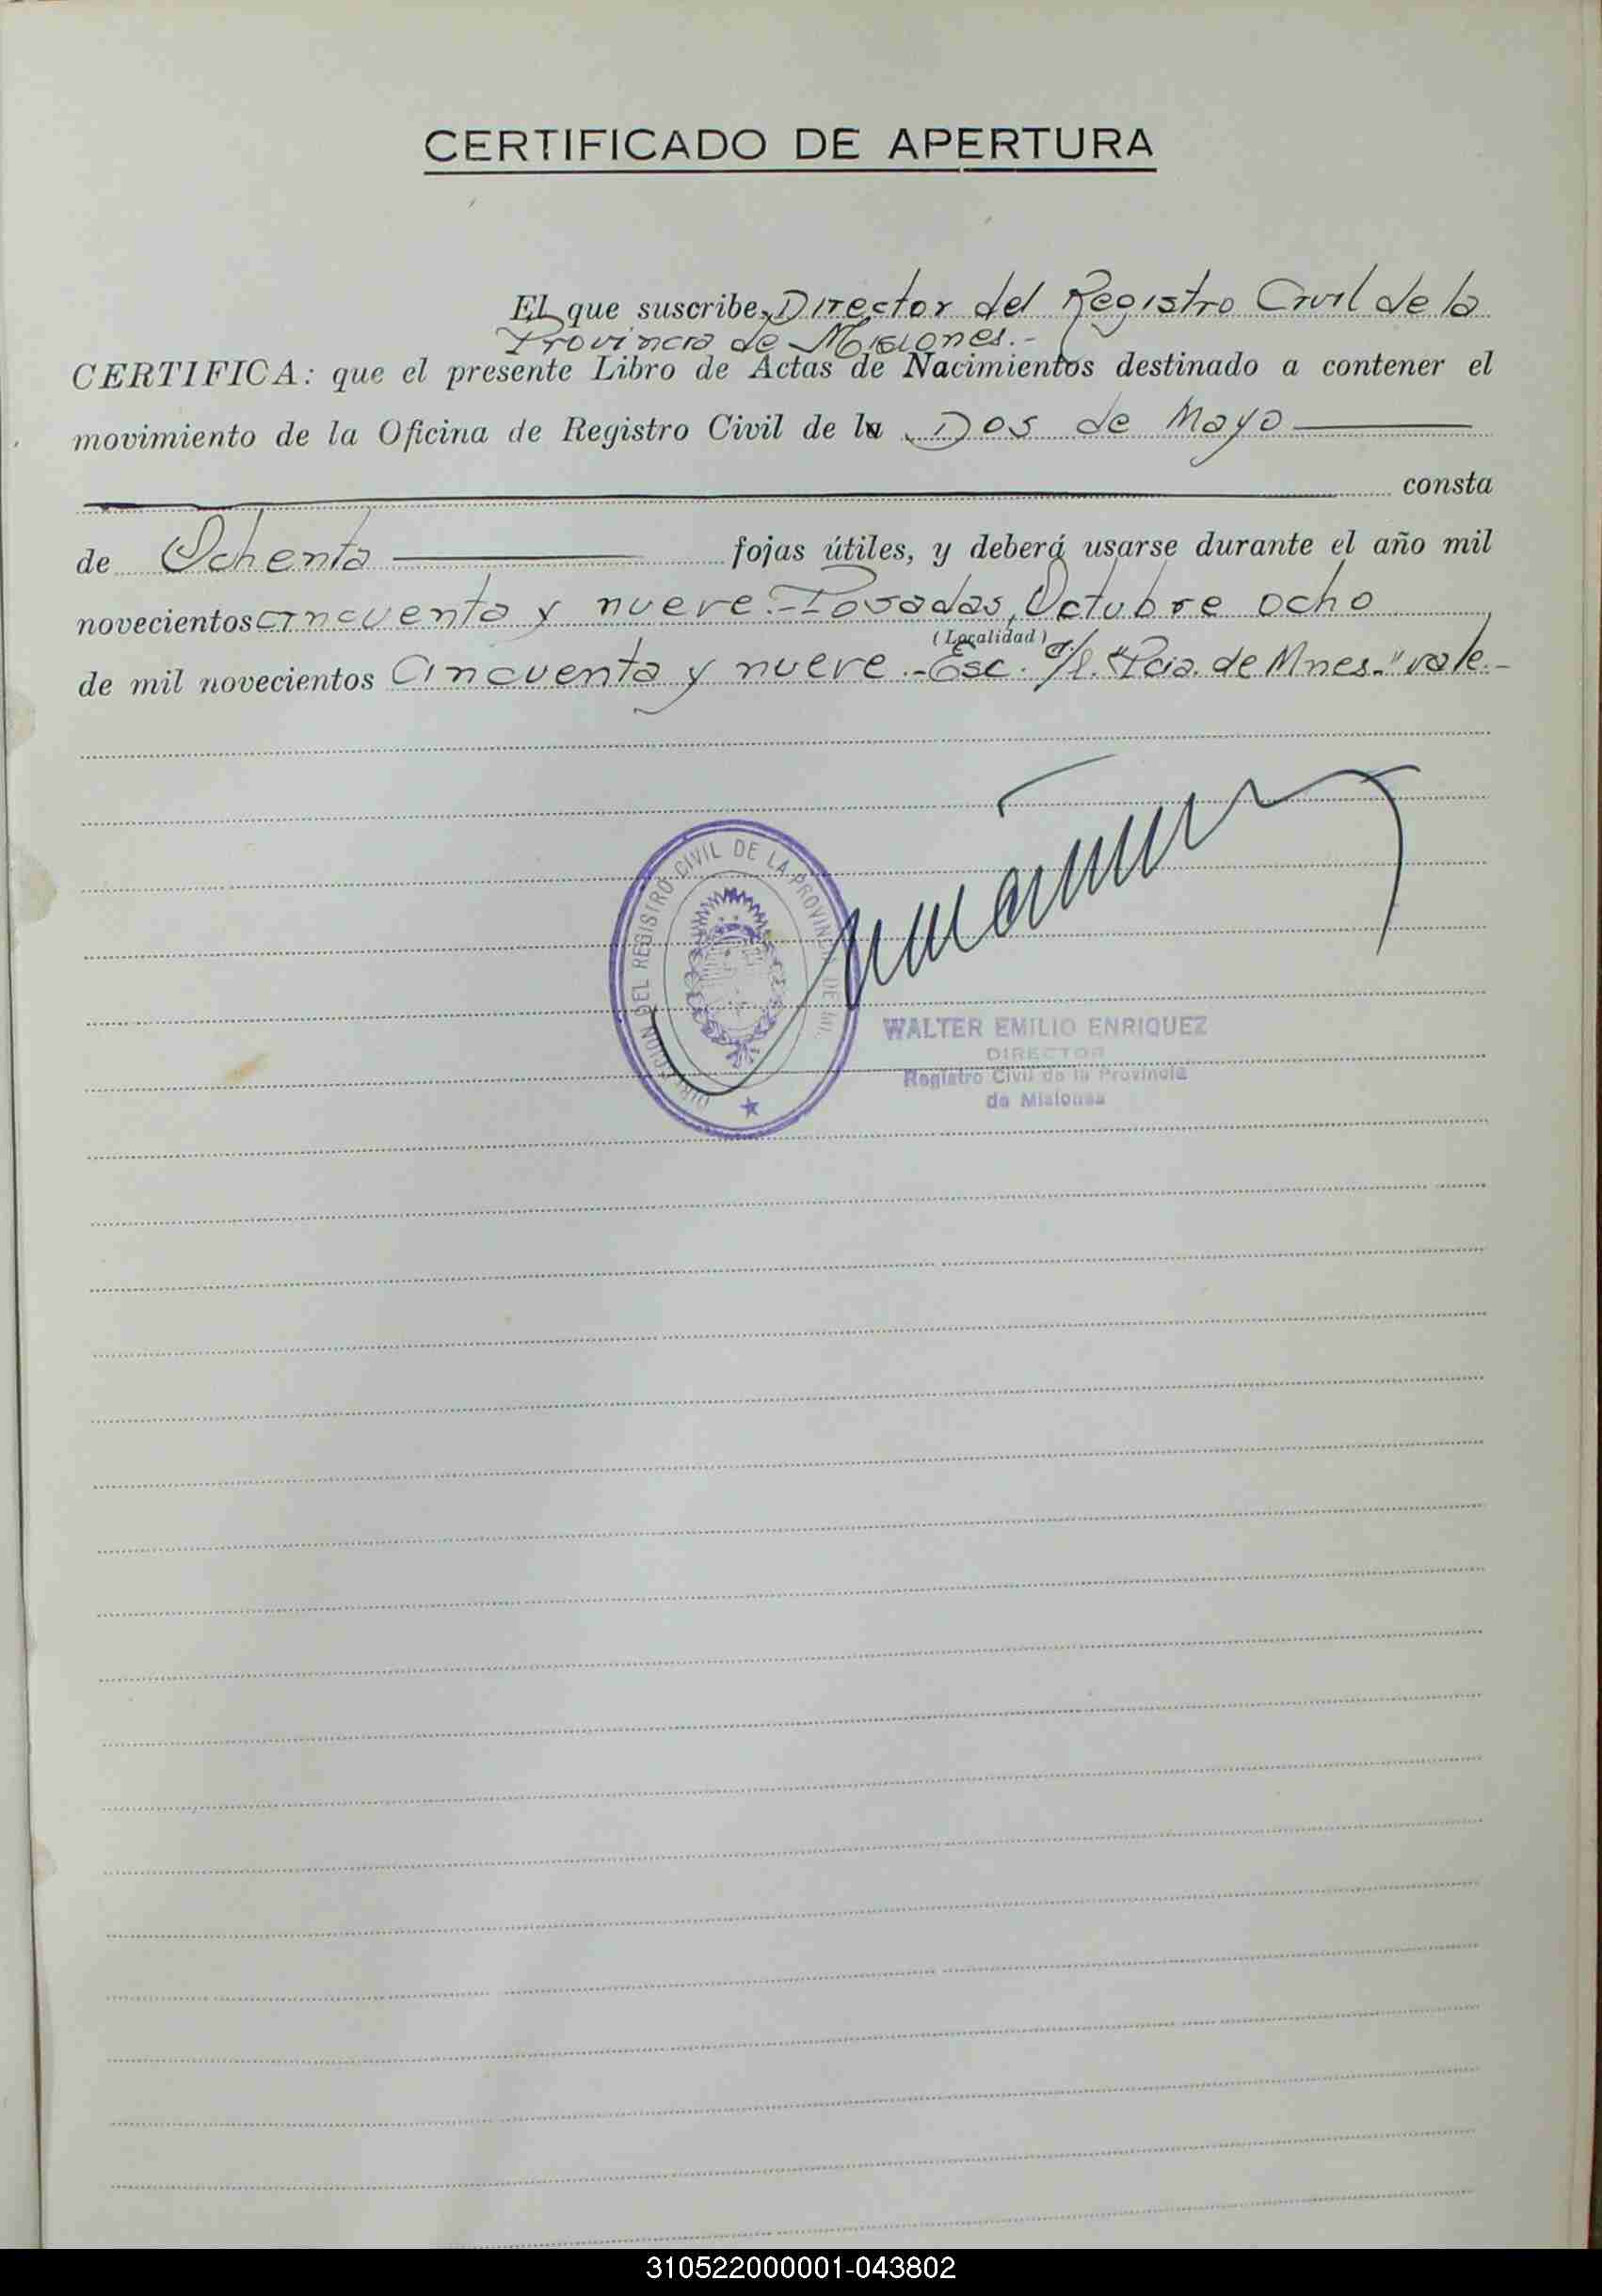 CERTIFICADO DE APERTURA
El que suscribe, Director del Registro Civil de la
Provincia de Misiones.-
CERTIFICA: que el presente Libro de Actas de Nacimientos destinado a contener el
movimiento de la Oficina de Registro Civil de la Dos de Mayo
consta
de Ochenta fojas útiles, y deberá usarse durante el año mil
novecientos cincuenta y nueve.- Posadas, Octubre ocho
(Localidad)
de mil novecientos Cincuenta y nueve.- Esc. e/l. "Pcia. de Mnes." vale.-
DIRECCION DEL REGISTRO CIVIL DE LA PROVINCIA DE MI.
WALTER EMILIO ENRIQUEZ
DIRECTOR
Registro Civil de la Provincia
de Misiones
310522000001-043802